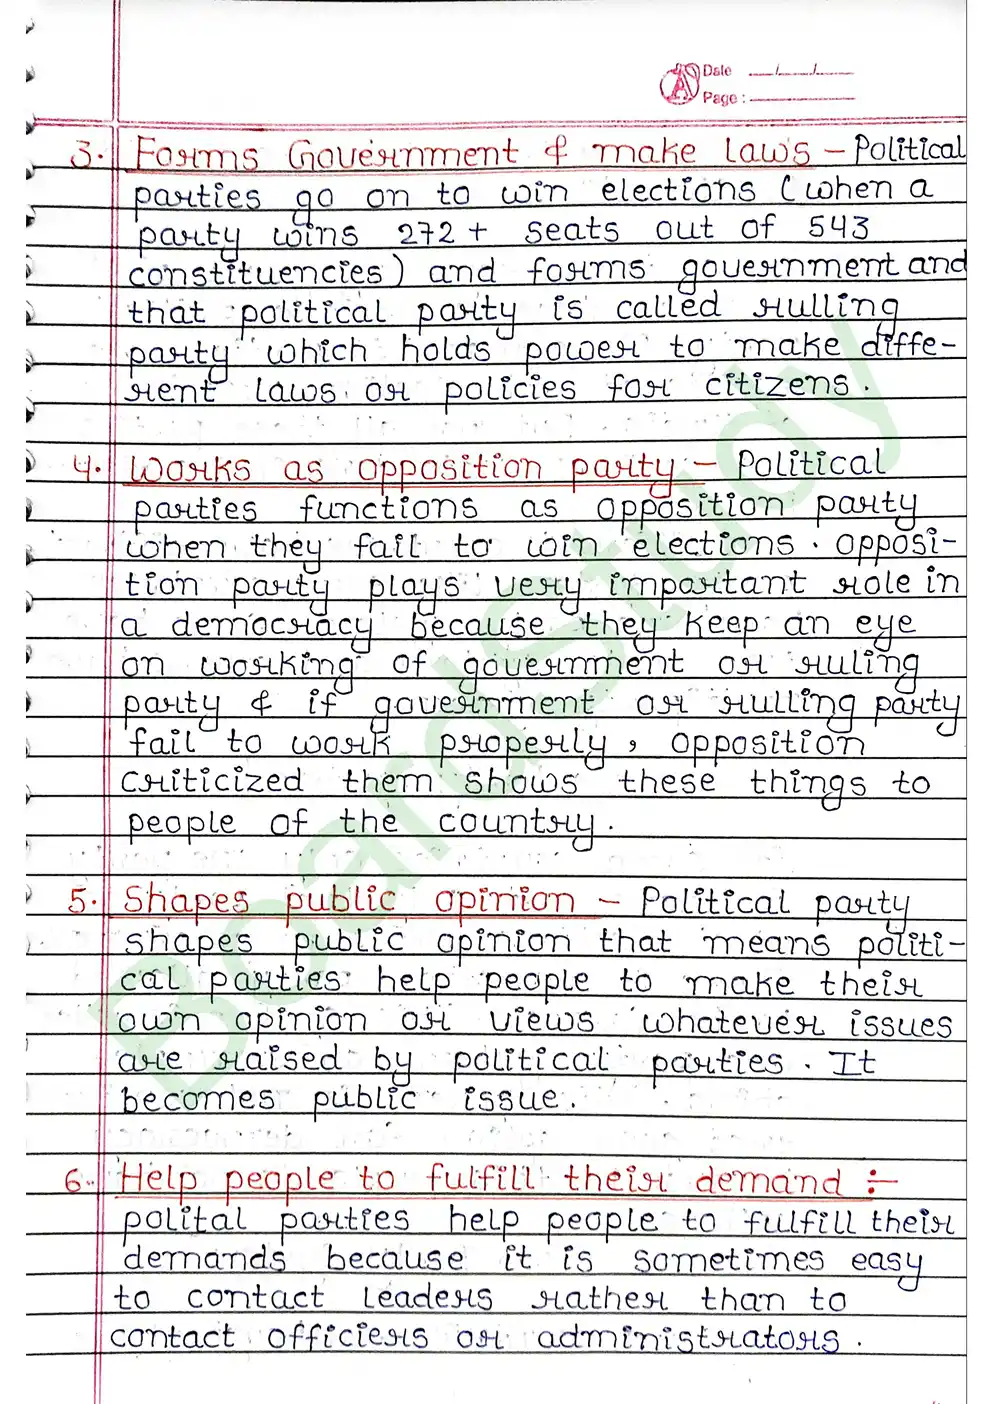 Date __/__/__
Page : ______
3. Forms Government & make laws - Political
parties go on to win elections (when a
party wins 272+ seats out of 543
constituencies) and forms government and
that political party is called rulling
party which holds power to make diffe-
rent laws or policies for citizens.
4. Works as opposition party - Political
parties functions as opposition party
when they fail to win elections. opposi-
tion party plays very important role in
a democracy because they keep an eye
on working of government or ruling
party & if government or rulling party
fail to work properly, opposition
criticized them shows these things to
people of the country.
5. Shapes public opinion - Political party
shapes public opinion that means politi-
cal parties help people to make their
own opinion or views whatever issues
are raised by political parties. It
becomes public issue.
6. Help people to fulfill their demand :-
polital parties help people to fulfill their
demands because it is sometimes easy
to contact leaders rather than to
contact officiers or administrators.
BoardStudy